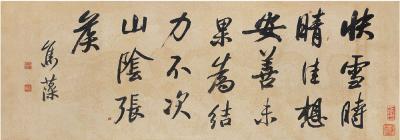 快雪時
晴佳想
安善未
果爲結
力不次
山陰張
侯
寯藻